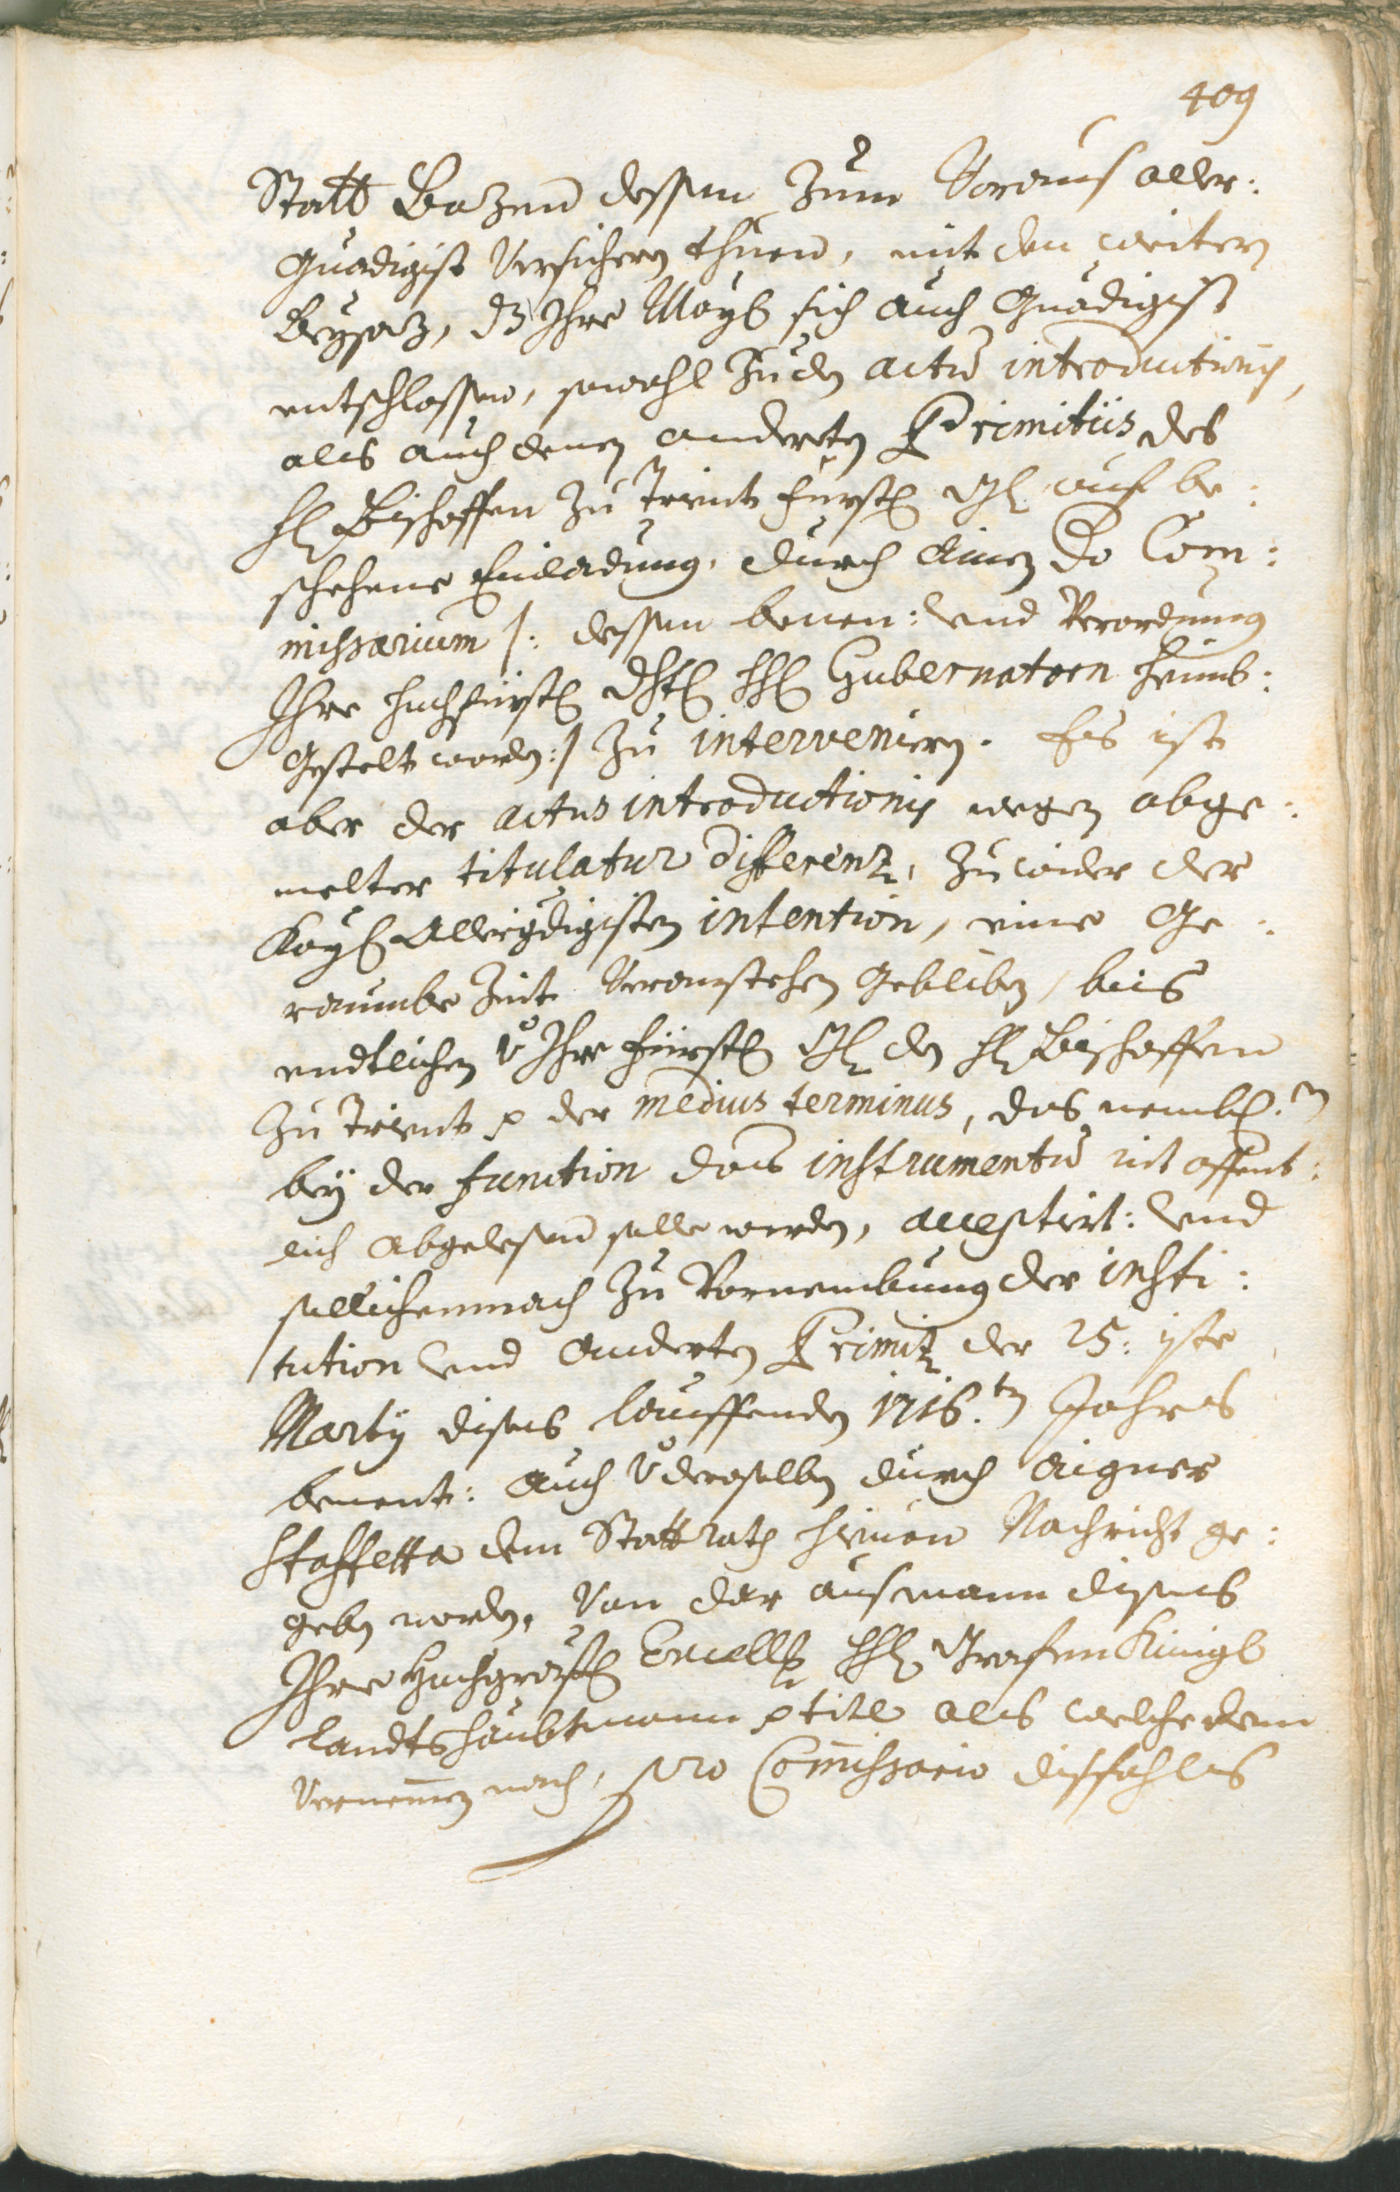 409
Statt Bozen dessen zum Voraus aller:
Gnädigist Versichern thuen, mit den weitern
Beysaz, dz Ihre May: sich auch Gnädigist
entschlossen, sowohl zu den actu introductionis,
als auch denen anderten Primitiis des
H: Bischoffen zu Trient fürstl: Gl: auf be:
schehene Einladung, durch ainen do Com:
missarium /: dessen benen: und Verordnung
Ihre hochfürstl: Dhtl: HH: Gubernatorn haimb:
Gestelt worden :/ zu intervenieren. Es ist
aber der actus introductionis wegen abge:
melter titulatur differenz, zuwider der
Kay: Allergdigisten intention, eine Ge:
raumbe Zeit Veranstehen gebliben, bis
endtlichen v Ihre fürstl: Gl: den H: Bischoffen
zu Trient p der medius terminus, das nembl:n
bey der function das instrumentu nit offent:
lich abgelesen solle werden, acceptirt: und
sollichemnach zu Vornembung der insti:
tution und anderten Primiz der 25: iste
Marty dises lauffenden 1716.tn Jahres
benent: auch v deroselben durch aigne
staffetta dem Stattrath hievon Nachricht ge:
geben worden, Von dar aus wann dises
Ihre Hochgräfl: Excellz HH: Grafen Künigl
Landtshaubtmann p titl als welche dem
Vernemen nach, pro Commissario dissfahls